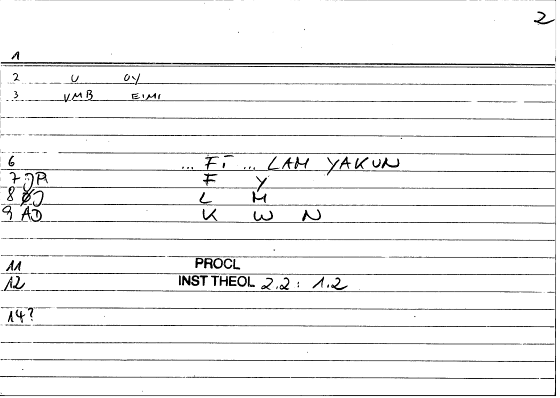 2
1
2 U OY
3 VMB EIMI
6 ... FĪ ... LAM YAKUN
7 JP. F Y
8 J L M
9 AD K W N
11 PROCL
12 INST THEOL 2.2: 1.2
14?